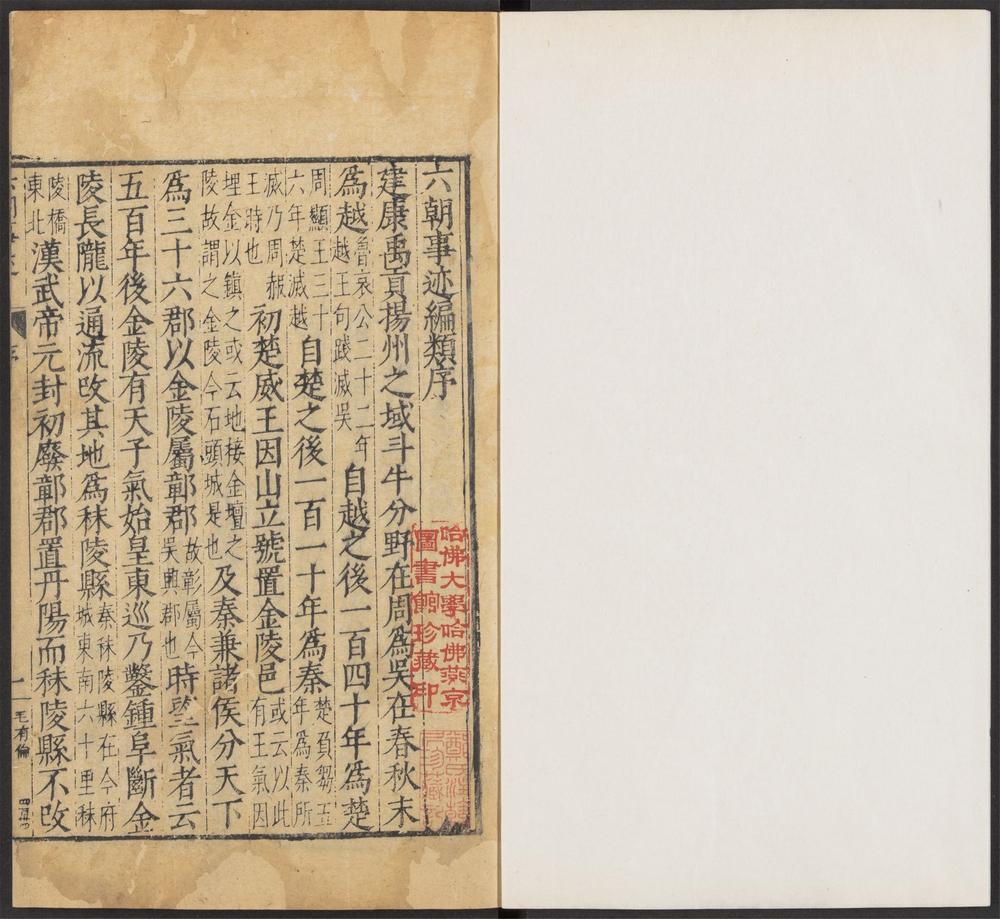 六朝事迹編類序
建康禹貢揚州之域斗牛分野在周爲吳在春秋末
爲越魯哀公二十二年越王句踐滅吳自越之後一百四十年爲楚
周顯王三十六年楚滅越自楚之後一百一十年爲秦楚負芻五年爲秦所
滅乃周赧王時也初楚威王因山立號置金陵邑或云以此有王氣因
埋金以鎮之或云地接金壇之陵故謂之金陵今石頭城是也及秦兼諸侯分天下
爲三十六郡以金陵屬鄣郡故彰屬今吳興郡也時望氣者云
五百年後金陵有天子氣始皇東巡乃鑿鍾阜斷金
陵長隴以通流改其地爲秣陵縣秦秣陵縣在今府城東南六十里秣
陵橋東北漢武帝元封初廢鄣郡置丹陽而秣陵縣不改
序
一
毛有倫
哈佛大學哈佛燕京
圖書館珍藏印